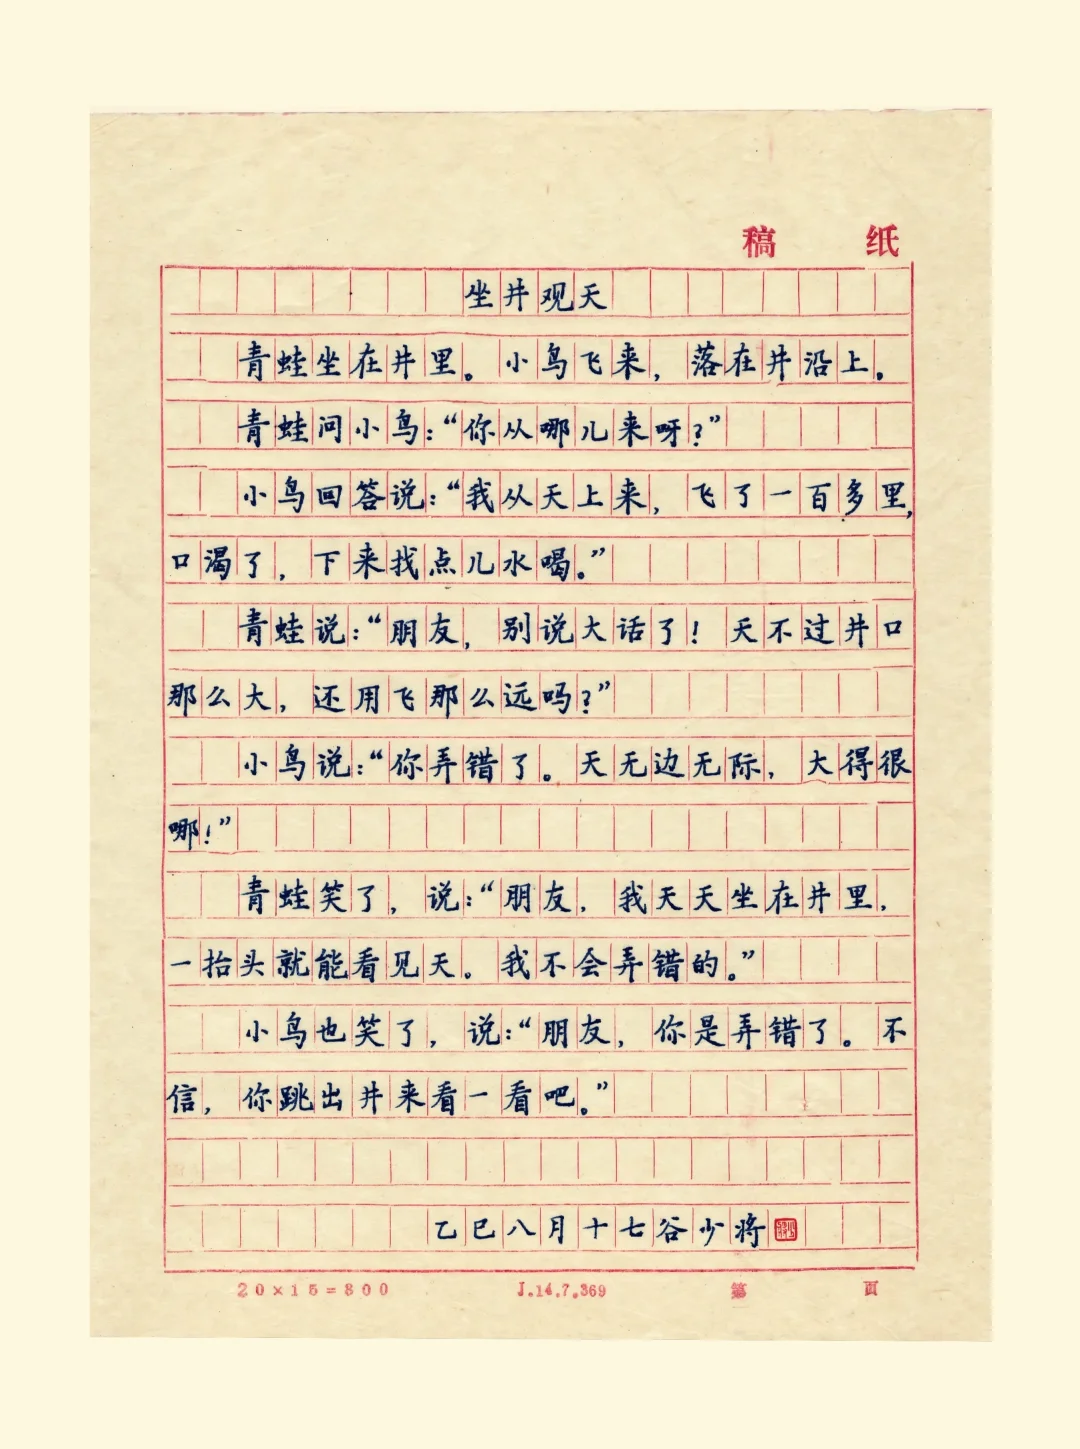 稿 纸
坐井观天
青蛙坐在井里。小鸟飞来，落在井沿上。
青蛙问小鸟：“你从哪儿来呀？”
小鸟回答说：“我从天上来，飞了一百多里，
口渴了，下来找点儿水喝。”
青蛙说：“朋友，别说大话了！天不过井口
那么大，还用飞那么远吗？”
小鸟说：“你弄错了。天无边无际，大得很
哪！”
青蛙笑了，说：“朋友，我天天坐在井里，
一抬头就能看见天。我不会弄错的。”
小鸟也笑了，说：“朋友，你是弄错了。不
信，你跳出井来看一看吧。”
乙巳八月十七谷少将
20×15=300 J.14.7.369 第 页